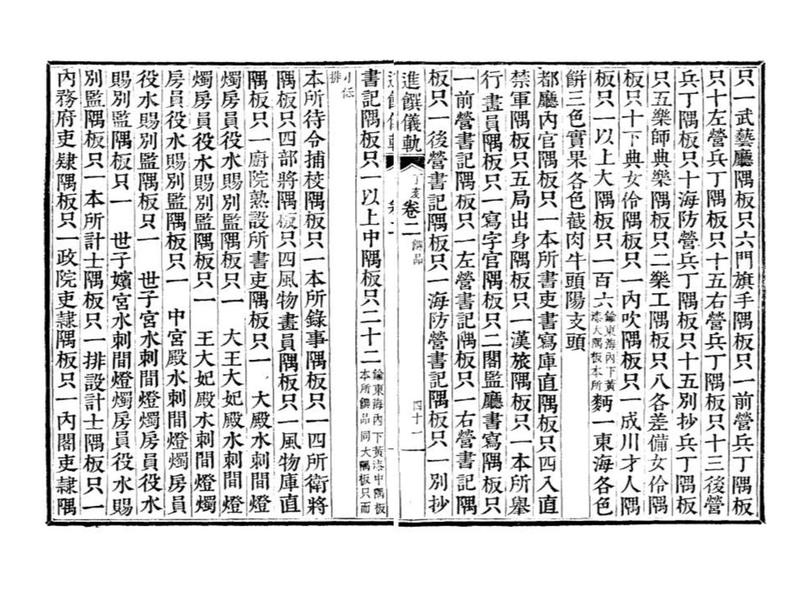 只一武藝廳隅板只六門旗手隅板只一前營兵丁隅板
只十左營兵丁隅板只十五右營兵丁隅板只十三後營
兵丁隅板只十海防營兵丁隅板只十五別抄兵丁隅板
只五樂師典樂隅板只二樂工隅板只八各差備女伶隅
板只十下典女伶隅板只一內吹隅板只一成川才人隅
板只一以上大隅板只一百六鍮東海內下黃漆大隅板本所麪一東海各色
餠三色實果各色截肉牛頭陽支頭
都廳內官隅板只一本所書吏書寫庫直隅板只四入直
禁軍隅板只五局出身隅板只一漢旅隅板只一本所擧
行畫員隅板只一寫字官隅板只二閣監廳書寫隅板只
一前營書記隅板只一左營書記隅板只一右營書記隅
板只一後營書記隅板只一海防營書記隅板只一別抄
進饌儀軌 卷二 饌品 四十二
書記隅板只一以上中隅板只二十二鍮東海內下黃漆中隅板本所饌品同大隅板只而
小低排
本所待令捕校隅板只一本所錄事隅板只一四所衛將
隅板只四部將隅板只四風物畫員隅板只一風物庫直
隅板只一廚院熟設所書吏隅板只一 大殿水刺間燈
燭房員役水賜別監隅板只一 大王大妃殿水刺間燈
燭房員役水賜別監隅板只一 王大妃殿水刺間燈燭
房員役水賜別監隅板只一 中宮殿水刺間燈燭房員
役水賜別監隅板只一 世子宮水刺間燈燭房員役水
賜別監隅板只一 世子嬪宮水刺間燈燭房員役水賜
別監隅板只一本所計士隅板只一排設計士隅板只一
內務府吏隸隅板只一政院吏隸隅板只一內閣吏隸隅